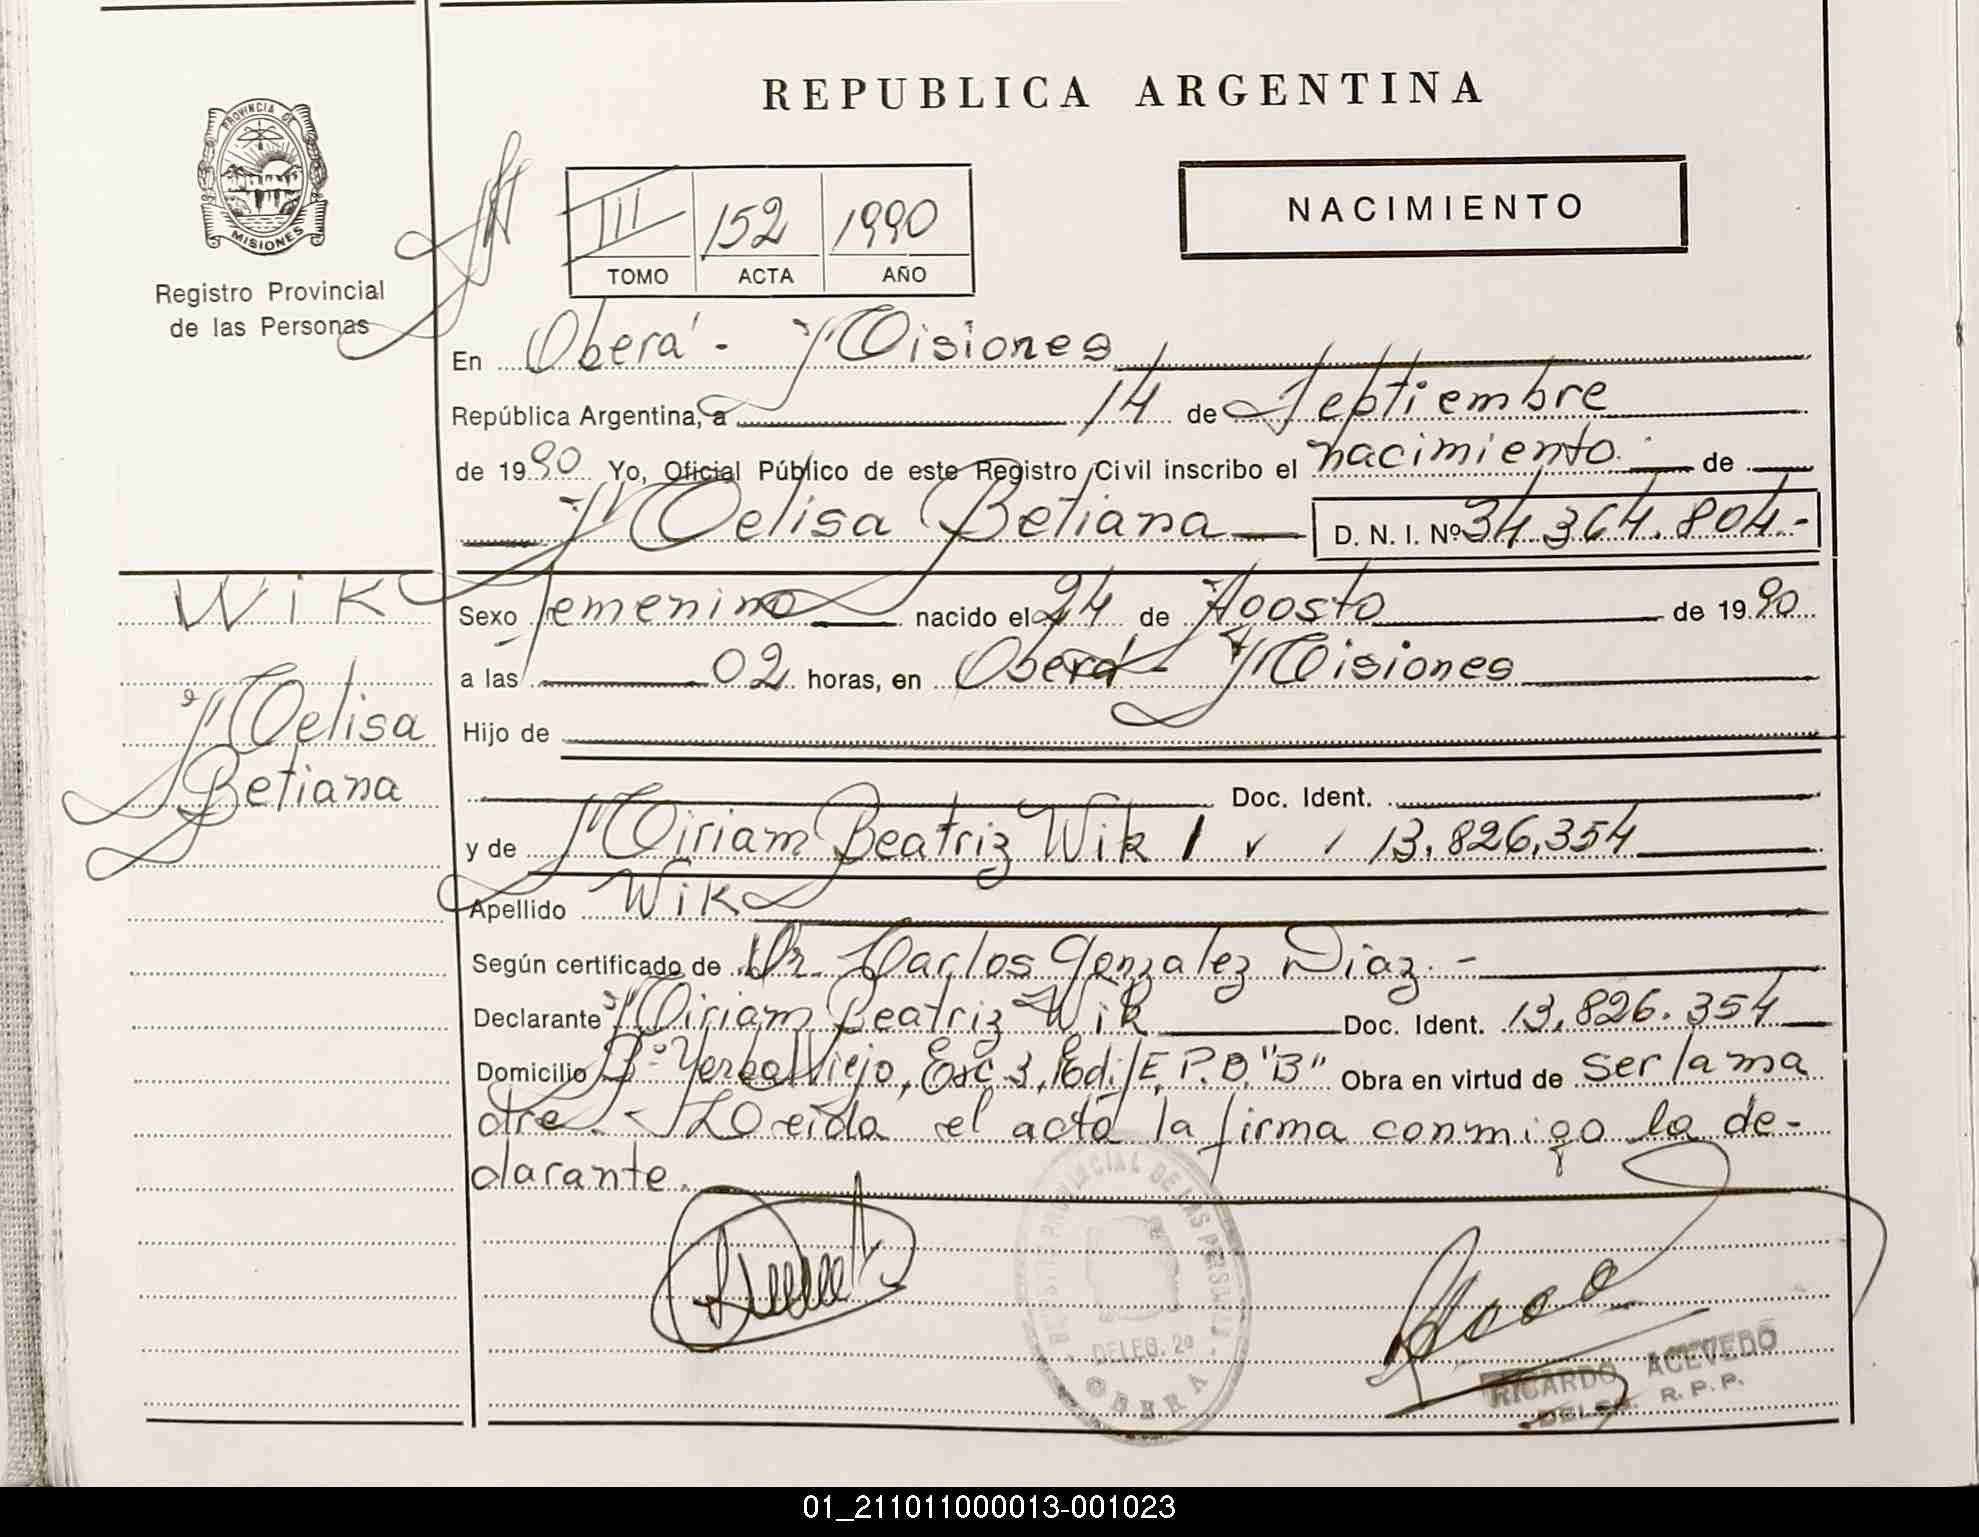 REPUBLICA ARGENTINA
PROVINCIA DE
MISIONES
Registro Provincial
de las Personas
III 152 1990
TOMO ACTA AÑO
NACIMIENTO
En Oberá - Misiones
República Argentina, a 14 de Septiembre
de 1990 Yo, Oficial Público de este Registro Civil inscribo el nacimiento de
Melisa Betiana D. N. I. Nº 34.364.804.-
Wik
Melisa
Betiana
Sexo femenino nacido el 24 de Agosto de 1990
a las 02 horas, en Oberá - Misiones
Hijo de
Doc. Ident.
y de Miriam Beatriz Wik 13.826.354
Apellido Wik
Según certificado de Dr. Carlos Gonzalez Diaz.-
Declarante Miriam Beatriz Wik Doc. Ident. 13.826.354
Domicilio Bº Yerbal Viejo, Esc 3, Edif E, P.B. "B" Obra en virtud de ser la ma
dre. - Leida el acta la firma conmigo la de-
clarante.
REGISTRO PROVINCIAL DE LAS PERSONAS
DELEG. 2º
OBERA
RICARDO ACEVEDO
DELEG. R. P. P.
01_211011000013-001023